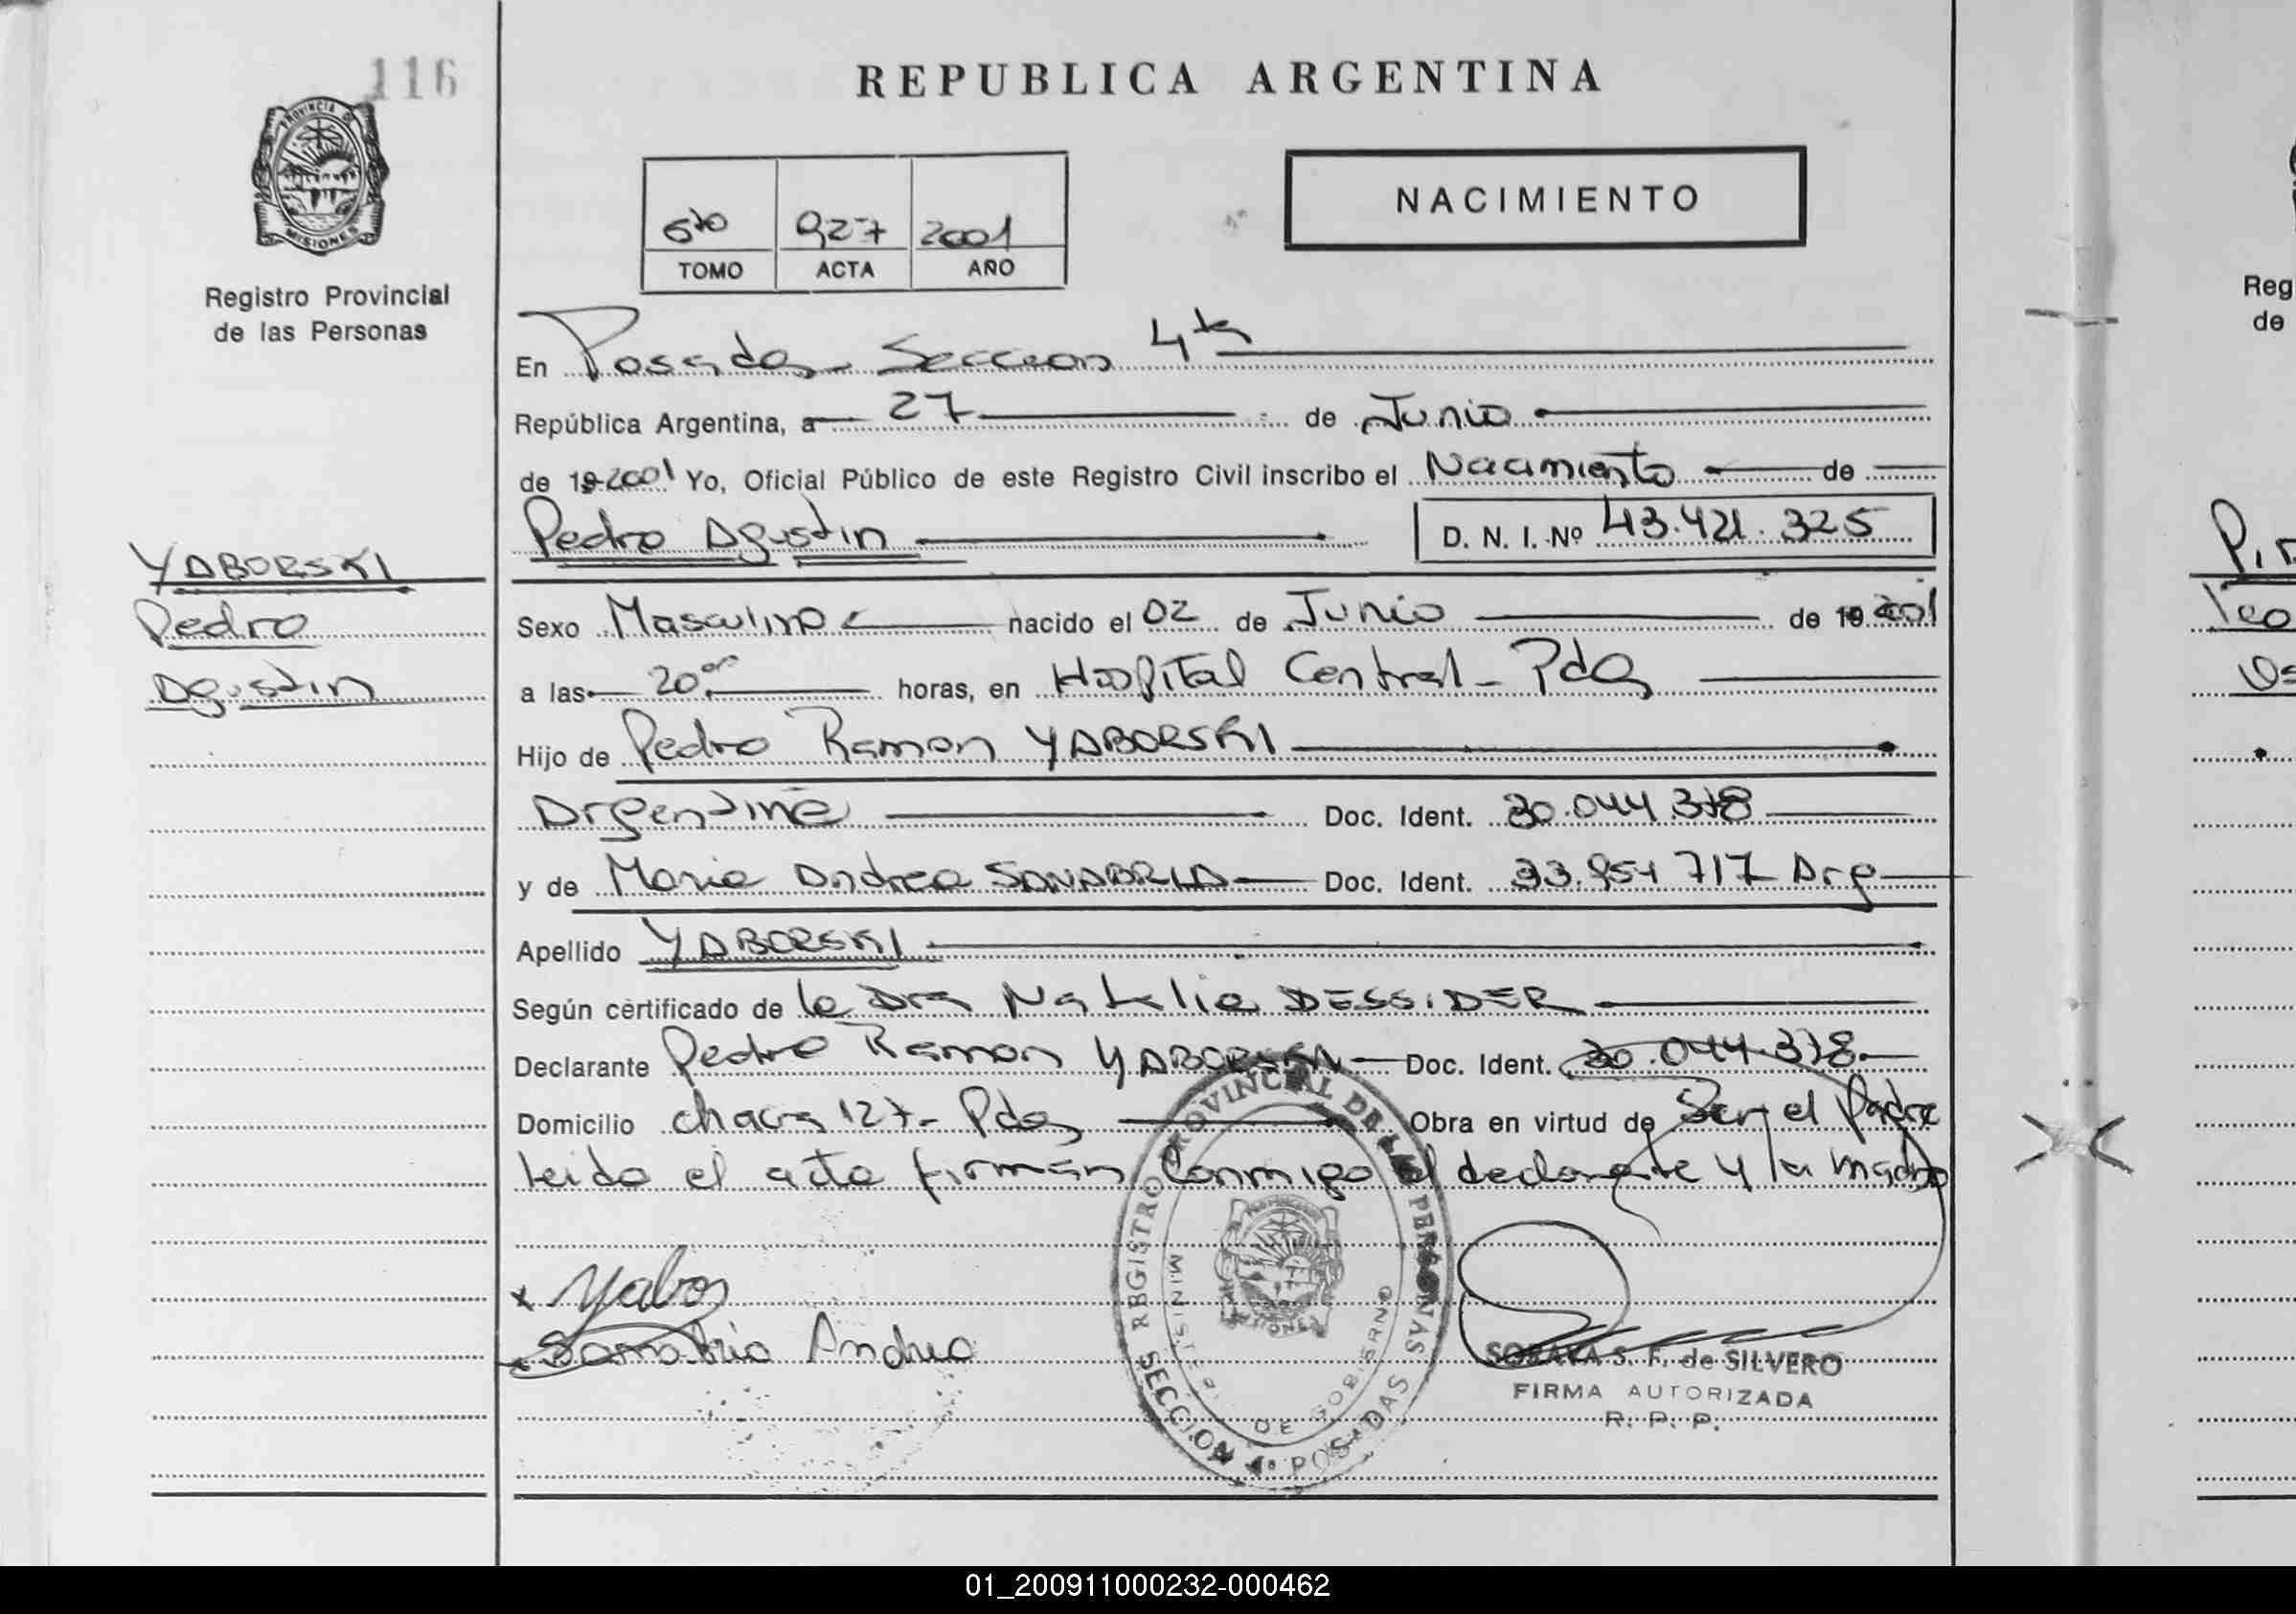 116
REPUBLICA ARGENTINA
PROVINCIA DE
MISIONES
Registro Provincial
de las Personas
NACIMIENTO
6to 927 2001
TOMO ACTA AÑO
En Posadas - Seccion 4ta
República Argentina, a 27 de Junio
de 19 2001 Yo, Oficial Público de este Registro Civil inscribo el Nacimiento de
Pedro Agustin D. N. I. Nº 43.421.325
YABORSKI
Pedro
Agustin
Sexo Masculino nacido el 02 de Junio de 19 2001
a las 20 horas, en Hospital Central - Pdas
Hijo de Pedro Ramon YABORSKI
Argentina Doc. Ident. 30.044.378
y de Maria Andrea SANABRIA Doc. Ident. 33.951 717 Arg
Apellido YABORSKI
Según certificado de la Dra Natalia DESSIDER
Declarante Pedro Ramon YABORSKI Doc. Ident. 30.044.378
Domicilio chacra 127 - Pdas Obra en virtud de Ser el Padre
leida el acta firman conmigo el declarante y la madre
REGISTRO PROVINCIAL DE LAS PERSONAS
MINISTERIO DE GOBIERNO
SECCION 4ª POSADAS
x Yabor
Sanabria Andrea
SORAYA S. F. de SILVERO
FIRMA AUTORIZADA
R. P. P.
Reg
de
01_200911000232-000462